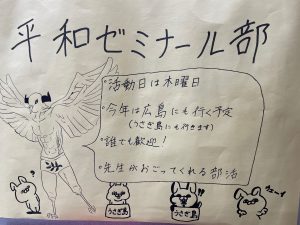 平和ゼミナール部
・活動日は木曜日
・今年は広島にも行く予定
(うさぎ島にも行きます)
・誰でも歓迎!
・先生がおごってくれる部活
?
うさぎ島
!!
うさぎ島